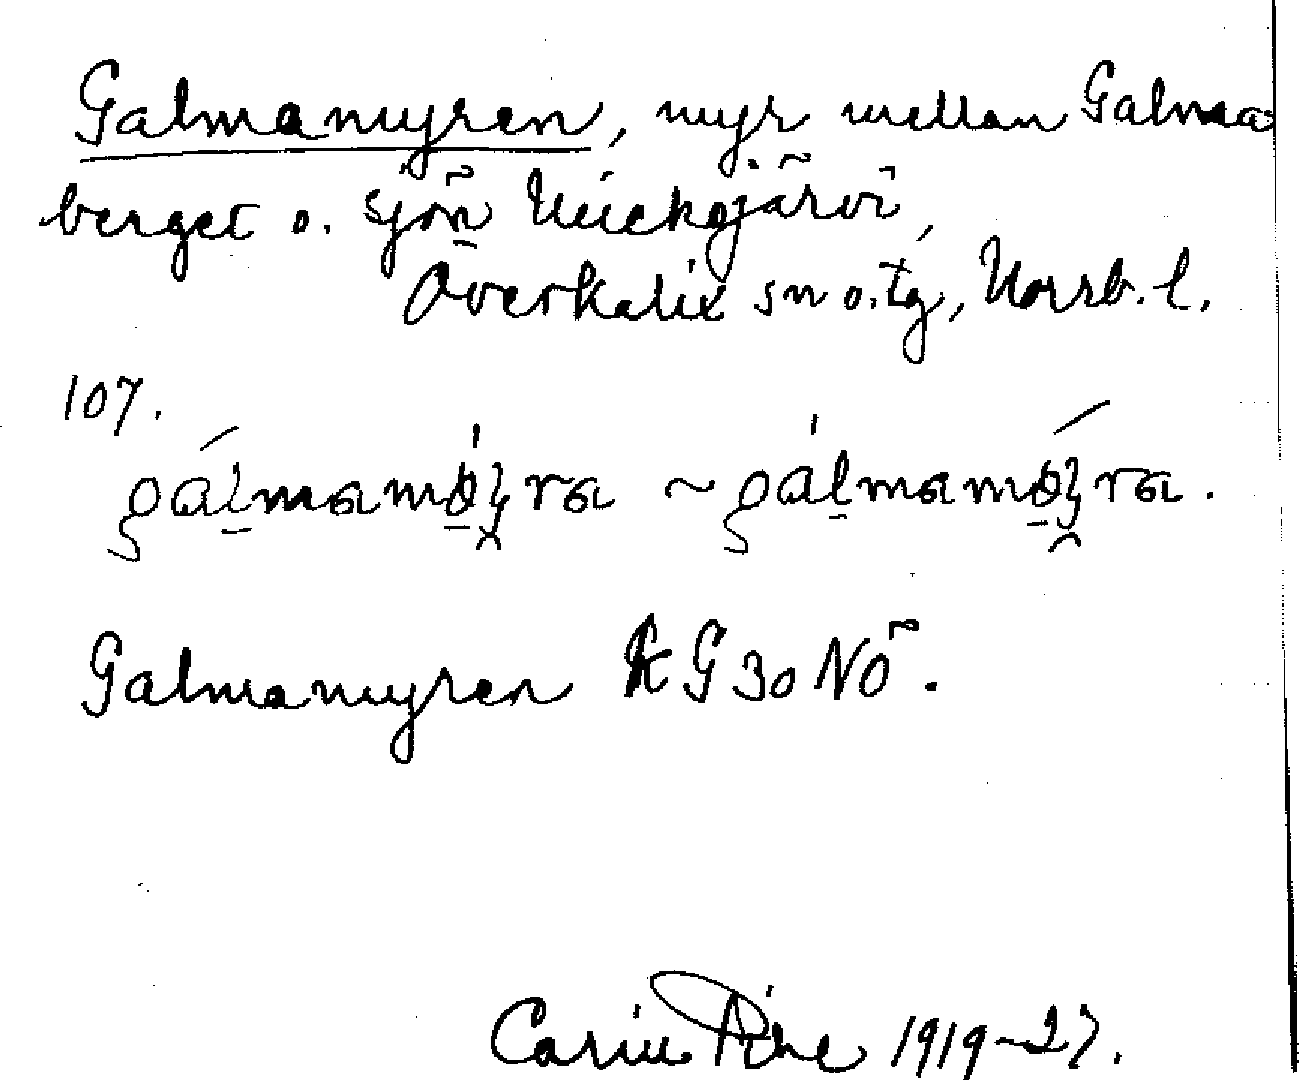 Galmamyren, myr mellan Galma
berget o. sjön Näckojärvi,
Överkalix sn o. tg, Norrb. l.
107.
gálmamö́yra ~ gálmamö́yra.
Galmamyren KG 30 NÖ.
Carin Pihl 1919-27.